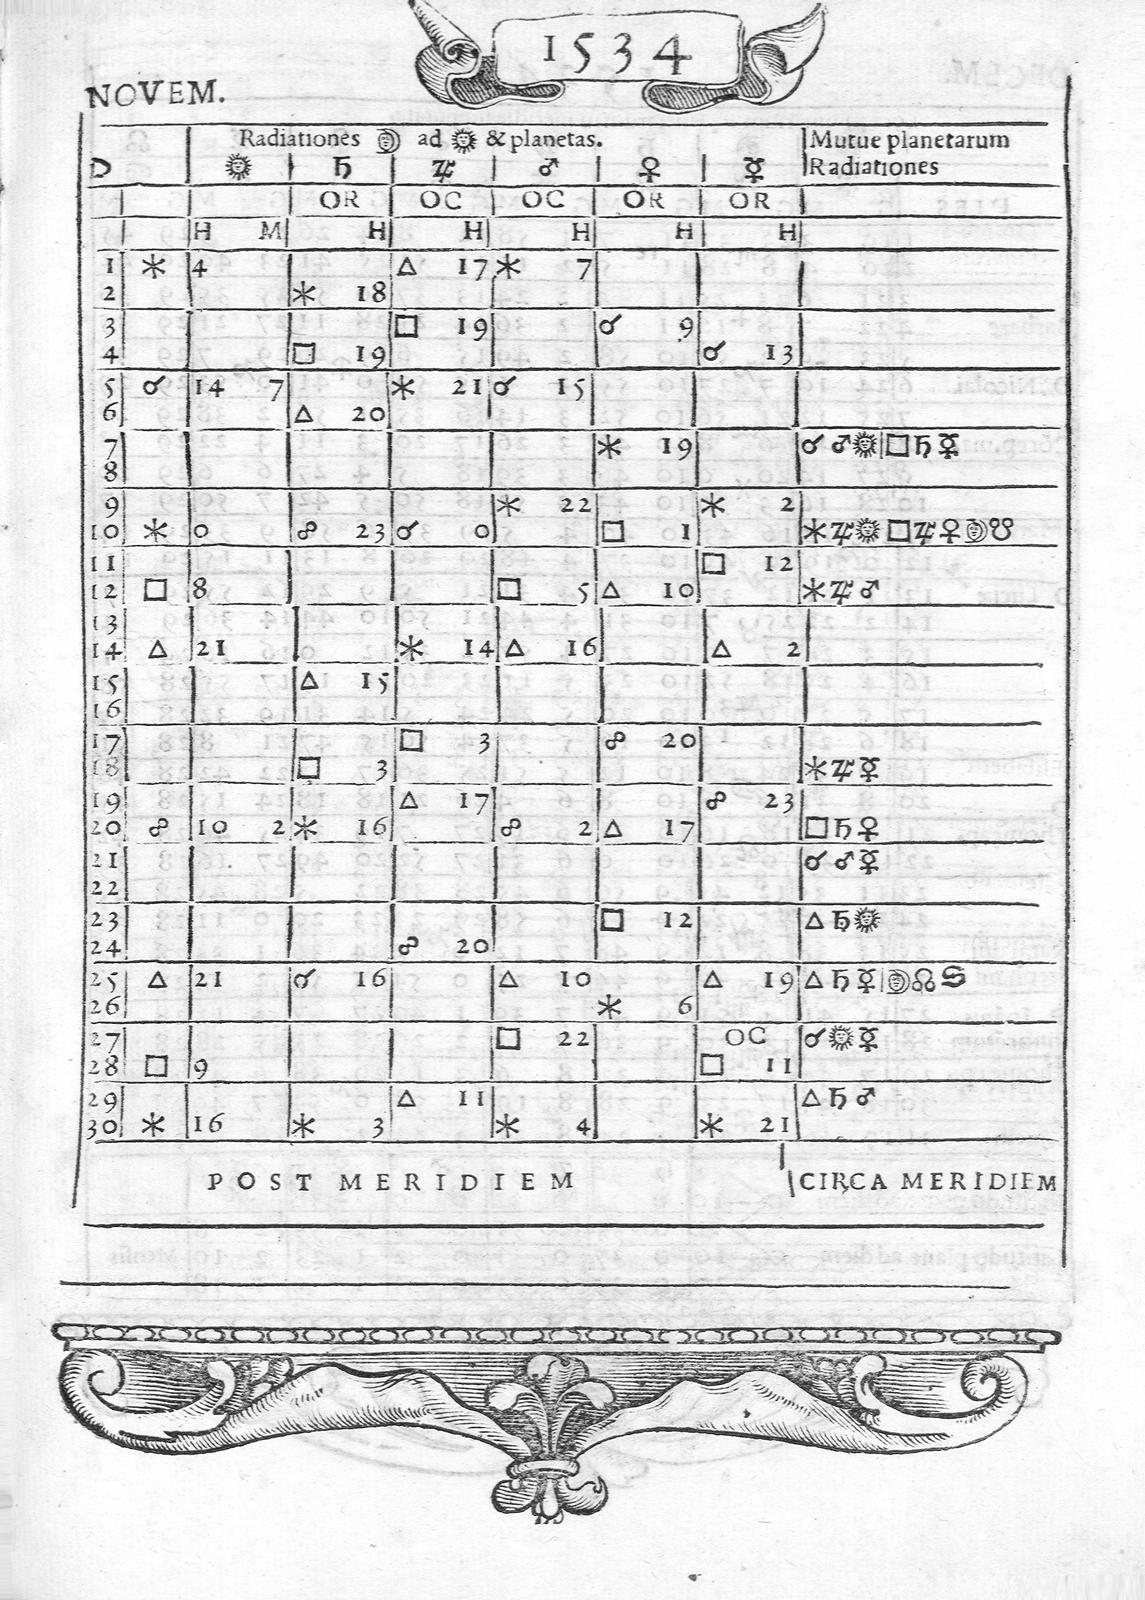 1534
NOVEM.
Radiationes ☽ ad ☉ & planetas. Mutue planetarum
D ☉ ♄ ♃ ♂ ♀ ☿ Radiationes
OR OC OC OR OR
H M H H H H H
1 ⚹ 4 △ 17 ⚹ 7
2 ⚹ 18
3 □ 19 ☌ 9
4 □ 19 ☌ 13
5 ☌ 14 7 ⚹ 21 ☌ 15
6 △ 20
7 ⚹ 19 ☌ ♂ ☉ □ ♄ ☿
8
9 ⚹ 22 ⚹ 2
10 ⚹ 0 ☍ 23 ☌ 0 □ 1 ⚹ ♃ ☉ □ ♃ ♀ ☽ ☋
11 □ 12
12 □ 8 □ 5 △ 10 ⚹ ♃ ♂
13
14 △ 21 ⚹ 14 △ 16 △ 2
15 △ 15
16
17 □ 3 ☍ 20
18 □ 3 ⚹ ♃ ☿
19 △ 17 ☍ 23
20 ☍ 10 2 ⚹ 16 ☍ 2 △ 17 □ ♄ ♀
21 ☌ ♂ ☿
22
23 □ 12 △ ♄ ☉
24 ☍ 20
25 △ 21 ☌ 16 △ 10 △ 19 △ ♄ ☿ ☽ ☊ ♋
26 ⚹ 6
27 □ 22 OC ☌ ☉ ☿
28 □ 9 □ 11
29 △ 11 △ ♄ ♂
30 ⚹ 16 ⚹ 3 ⚹ 4 ⚹ 21
POST MERIDIEM CIRCA MERIDIEM